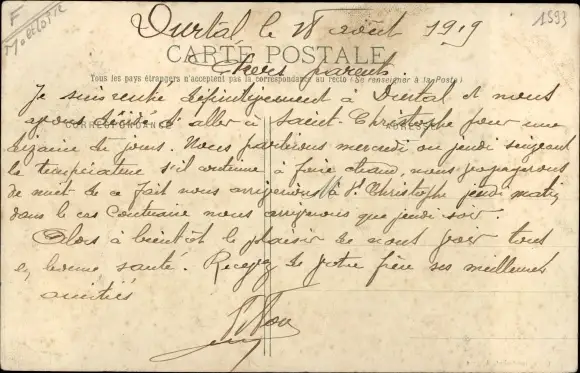 F
Durtal le 28 août 1919
1593
CARTE POSTALE
Chers parents
Tous les pays étrangers n'acceptent pas la correspondance au recto (Se renseigner à la Poste)
Je suis rentré définitivement à Durtal et nous
avons décidé d'aller à Saint-Christophe pour une
CORRESPONDANCE
ADRESSE
dizaine de jours. Nous partirons mercredi ou jeudi suivant
la température s'il continue à faire chaud, nous voyagerons
de nuit de ce fait nous arriverions à St Christophe jeudi matin
dans le cas contraire nous arriverons que jeudi soir.
Alors à bientôt le plaisir de vous voir tous
en bonne santé. Recevez de votre frère ses meilleures
amitiés